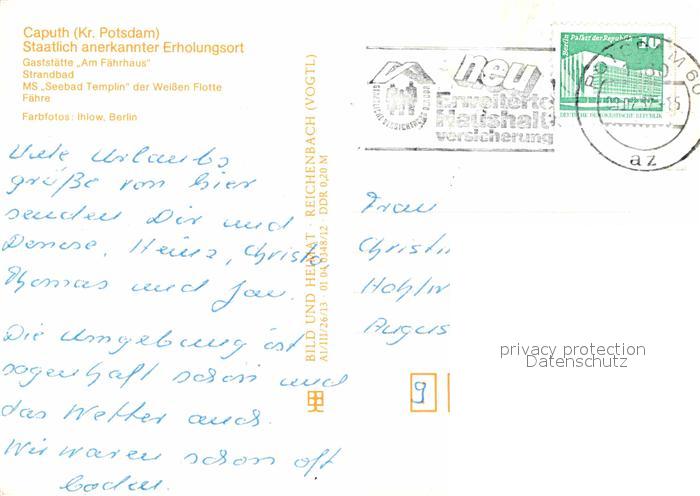 Caputh (Kr. Potsdam)
Staatlich anerkannter Erholungsort
Gaststätte „Am Fährhaus"
Strandbad
MS „Seebad Templin" der Weißen Flotte
Fähre
Farbfotos: Ihlow, Berlin
Viele Urlaubs
grüße von hier
senden Dir und
Denise, Heinz, Christa,
Thomas und Jan.
Die Umgebung ist
sagenhaft schön und
das Wetter auch.
Wir waren schon oft
baden.
BILD UND HEIMAT · REICHENBACH (VOGTL)
A1/III/26/13 · 01 04 0348/12 · DDR 0,20 M
neu
Erweiterte
Haushalt-
versicherung
Berlin Palast der Republik
10
DEUTSCHE DEMOKRATISCHE REPUBLIK
az
Frau
Christi
Hohlw
Augus
9
privacy protection
Datenschutz